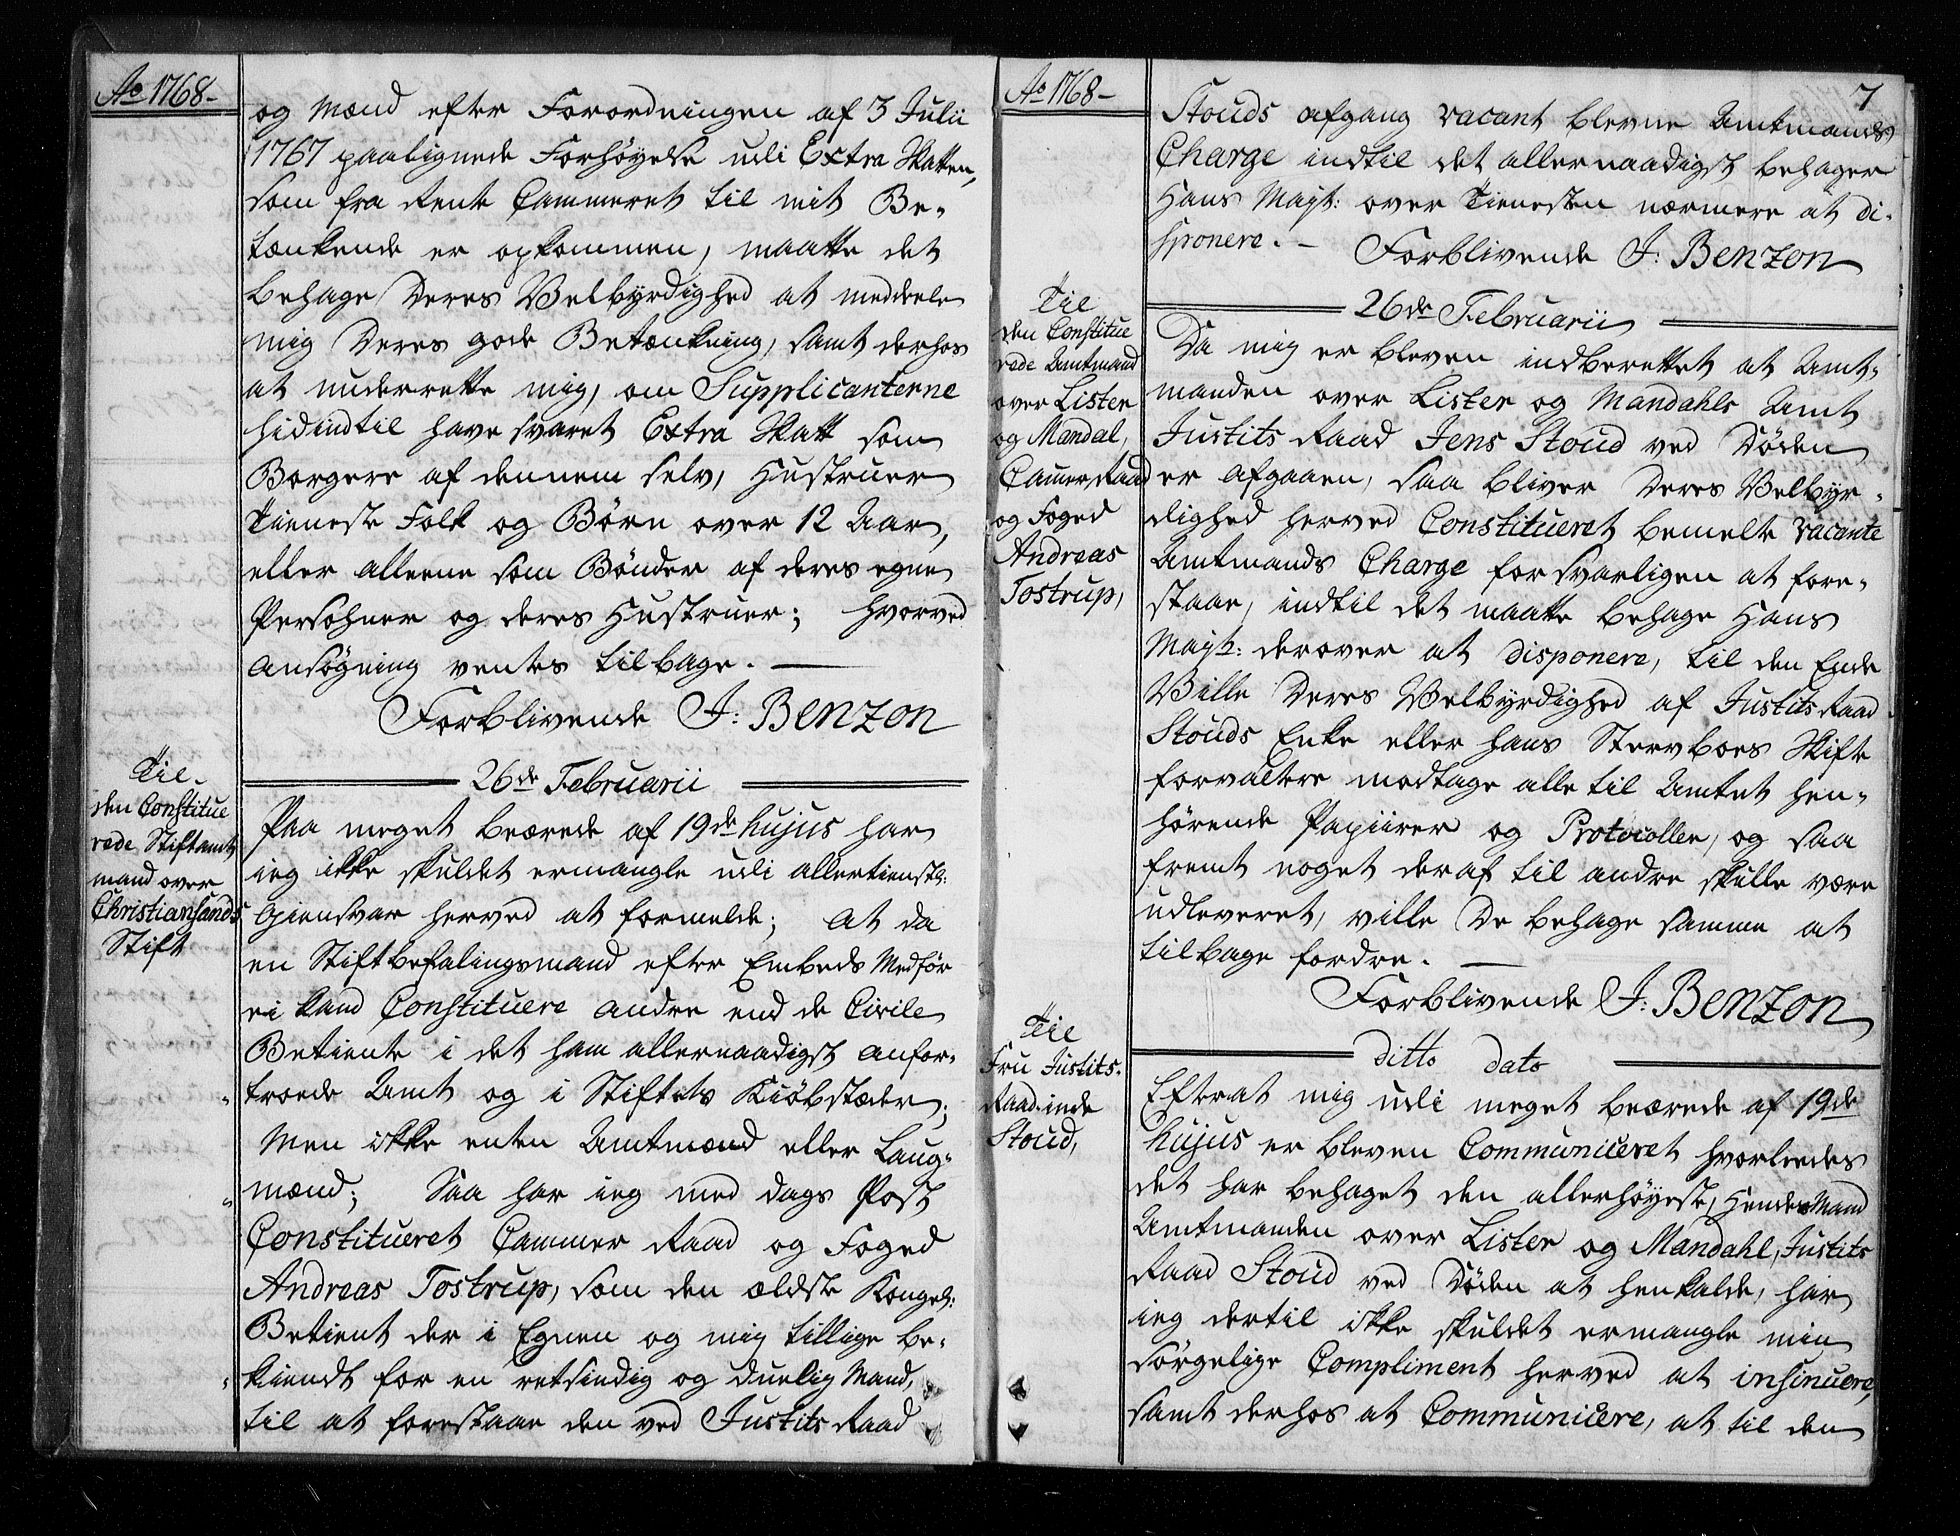 Ao 1768-
og Mænd efter Forordningen af 3 Julii
1767 paalignede Forhøyelse udi Extra Skatten,
som fra Rente Cammeret til mit Be-
tænkende er opkommen, maatte det
behage Deres Velbyrdighed at meddeele
mig Deres gode Betænkning, samt derhos
at underrette mig, om Supplicanterne
hidindtil have svaret Extra Skatt som
Borgere af dennem selv, Hustruer
Tieneste Folk og Børn over 12 Aar,
eller alleene som Bønder af deres egne
Persohner og deres Hustruer; hvorved
ansøgning ventes tilbage.
Forblivende J: Benzon
26de Februarii
Til
den Constitue
rede Stiftamt
mand over
Christiansands
Stift
Paa meget beærede af 19de hujus har
ieg ikke skuldet ermangle udi allertienstl:
Giensvar herved at formelde; At da
en Stiftbefalingsmand efter Embeds Medfør
ei kand Constituere andre end de Civile
Betiente i det ham allernaadigst anfor-
troede Amt og i Stiftets Kiøbstæder;
Men ikke enten Amtmænd eller Laug-
mænd; Saa har ieg med dags Post
Constitueret Cammer Raad og Foged
Andreas Tostrup, som den ældste Kongel:
Betient der i Egnen og mig tillige be-
kiendt for en retsindig og duelig Mand,
til at forestaae den ved Justits Raad
Ao 1768-
7
Stouds afgang vacant blevne Amtmands
Charge indtil det allernaadigst behager
Hans Mayt: over Tienesten nærmere at di-
sponere. -
Forblivende J: Benzon
26de Februarii
Til
den Constitue
rede Amtmand
over Lister
og Mandal,
Camer Raad
og Foged
Andreas
Tostrup,
Da mig er bleven indberettet at Amt-
manden over Lister og Mandahls Amt
Justits Raad Jens Stoud ved Døden
er afgaaen, saa bliver Deres Velbyr-
dighed herved Constitueret bemelte vacante
Amtmands Charge forsvarligen at fore-
staae, indtil det maatte behage Hans
Mayt: derover at disponere, til den Ende
Ville Deres Velbyrdighed af Justits Raad
Stouds Enke eller hans Stervboes Skifte
forvaltere modtage alle til Amtet hen-
hørende Papiirer og Protocoller, og saa
fremt noget deraf til andre skulle være
udleveret, ville De behage samme at
tilbage fordre.
Forblivende J: Benzon
ditto dato
Til
Fru Justits-
Raadinde
Stoud,
Efterat mig udi meget beærede af 19de
hujus er bleven Communiceret hvorleedes
det har behaget den allerhøyeste, Hendes Mand
Amtmanden over Lister og Mandahl, Justits
Raad Stoud ved Døden at henkalde, har
ieg dertil ikke skuldet ermangle min
sørgelige Compliment herved at insinuere,
samt derhos at Communicere, at til den